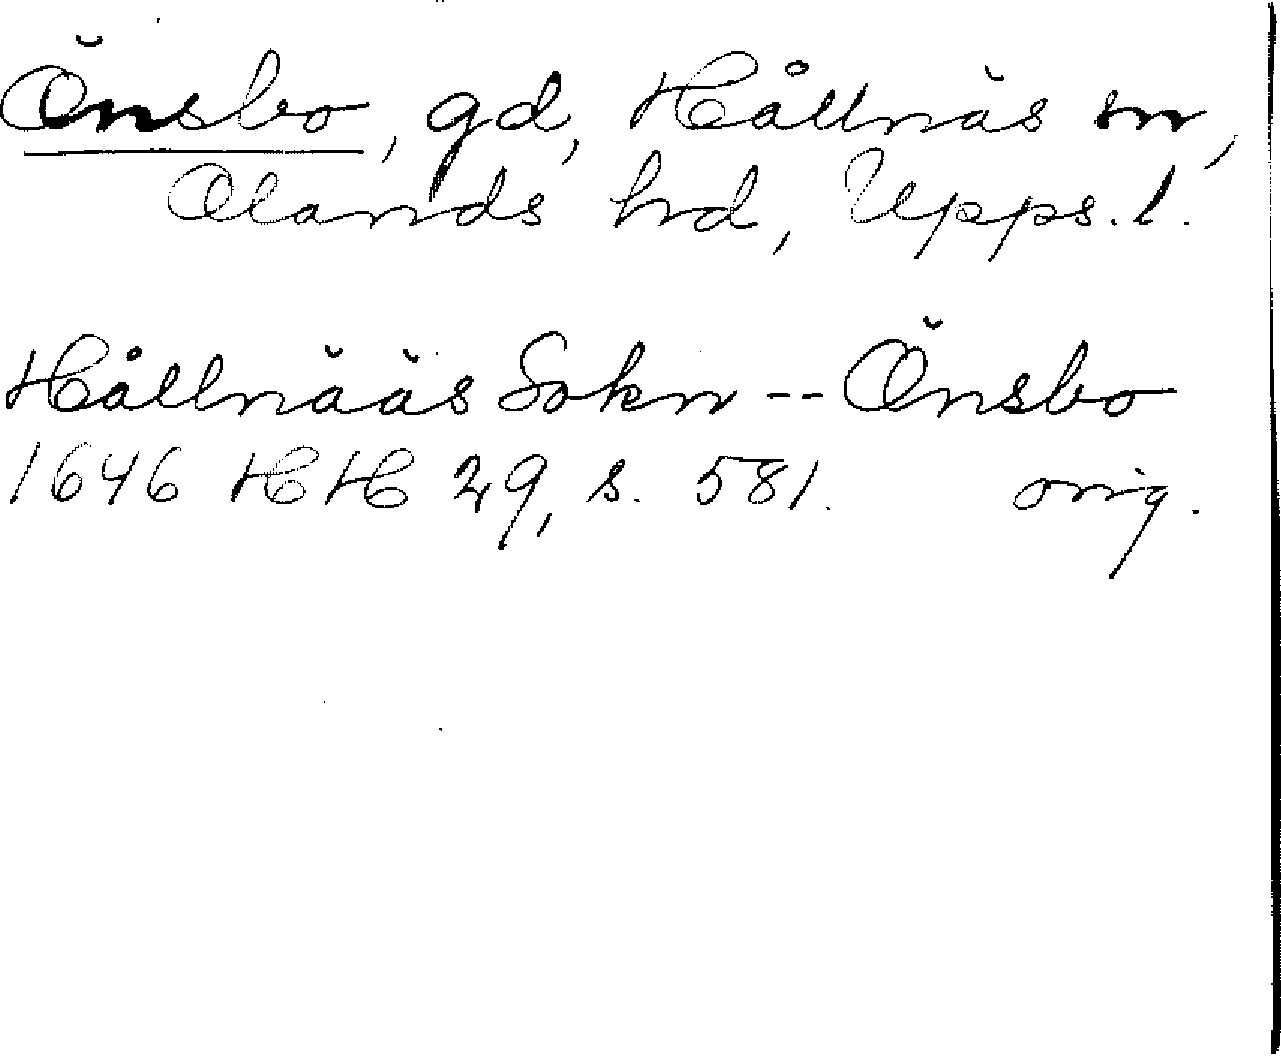 Önsbo, gd, Hållnäs sn,
Olands hd, Upps. l.
Hållnääs Sokn -- Önsbo
1646 HH 29, s. 581. orig.